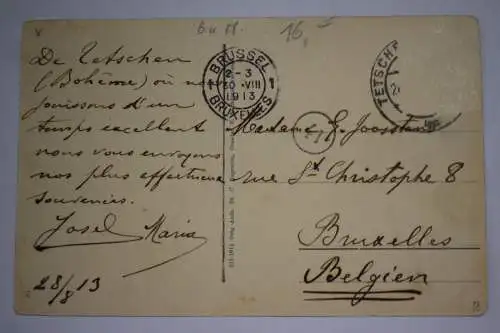 6.4.08.
16,-
De Tetschen
(Bohème) où nous
jouissons d'un
temps excellent
nous vous envoyons
nos plus affectueux
souvenirs.
Josef Maria
28/8 13
BRUSSEL
2-3
30 VIII
1913
BRUXELLES
1
TETSCHE
Madame J. Joosstens
rue St Christophe 8
Bruxelles
Belgien